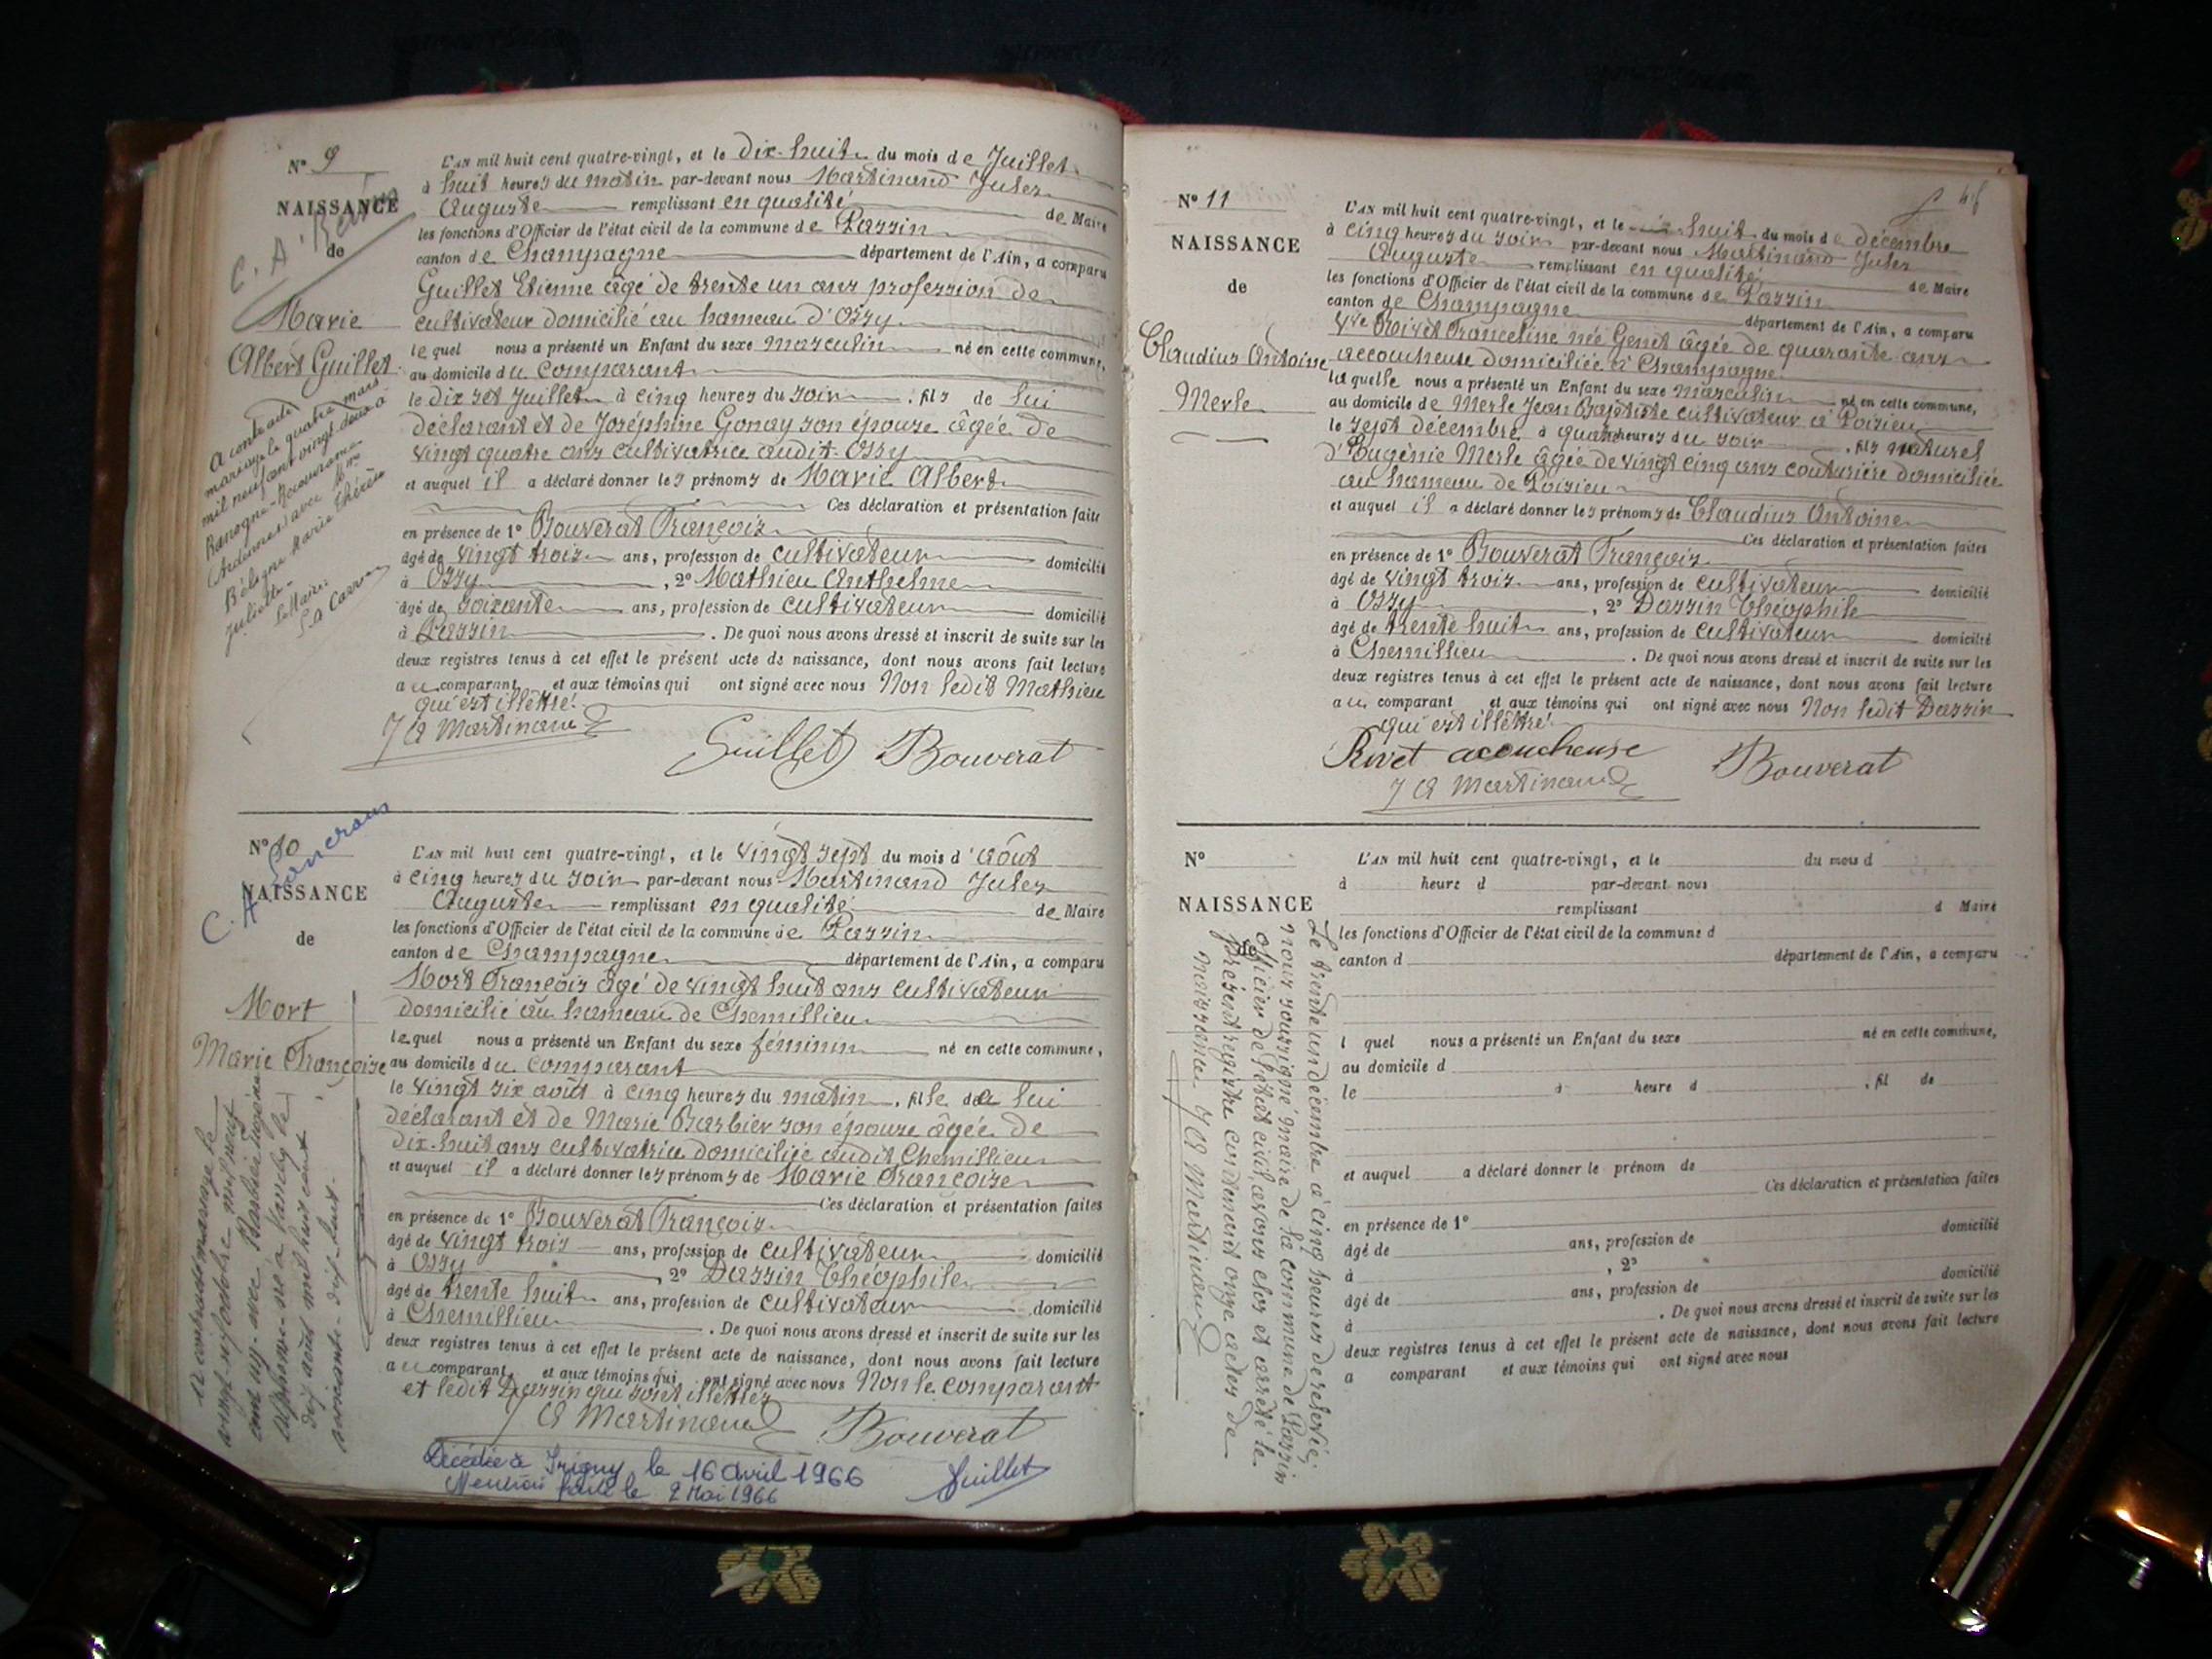 N° 9
NAISSANCE
de
Marie
Albert Guillet
A contracté
mariage le quatre mars
mil neuf cent vingt deux à
(Ardennes) avec Mme
Marie Thérèse
Juliette
Le Maire
L'AN mil huit cent quatre-vingt, et le dix-huit du mois de Juillet
à huit heures du matin par-devant nous Martinand Jules
Auguste remplissant en qualité de Maire
les fonctions d'Officier de l'état civil de la commune de Passin
canton de Champagne département de l'Ain, a comparu
Guillet Etienne âgé de trente un ans profession de
cultivateur domicilié au hameau d'Ossy
lequel nous a présenté un Enfant du sexe masculin né en cette commune,
au domicile du comparant
le dix set Juillet à cinq heures du soir, fils de lui
déclarant et de Joséphine Gonay son épouse âgée de
vingt quatre ans cultivatrice audit Ossy
et auquel il a déclaré donner les prénoms de Marie Albert
Ces déclaration et présentation faites
en présence de 1° Bouverat François
âgé de vingt trois ans, profession de cultivateur domicilié
à Ossy, 2° Mathieu Anthelme
âgé de soixante ans, profession de cultivateur domicilié
à Passin. De quoi nous avons dressé et inscrit de suite sur les
deux registres tenus à cet effet le présent acte de naissance, dont nous avons fait lecture
au comparant et aux témoins qui ont signé avec nous Non ledit Mathieu
qui est illétré
J A Martinand
Guillet Bouverat
N° 10
NAISSANCE
de
Mort
Marie Françoise
A contracté mariage le
vingt-six octobre mil neuf
cent avec Barbier Eugène
Alphonse né à le
dix août mil huit cent
soixante-dix-huit
L'AN mil huit cent quatre-vingt, et le vingt sept du mois d'août
à cinq heures du soir par-devant nous Martinand Jules
Auguste remplissant en qualité de Maire
les fonctions d'Officier de l'état civil de la commune de Passin
canton de Champagne département de l'Ain, a comparu
Mort François âgé de vingt huit ans cultivateur
domicilié au hameau de Chemillieu
lequel nous a présenté un Enfant du sexe féminin né en cette commune,
au domicile du comparant
le vingt six août à cinq heures du matin, fille de lui
déclarant et de Marie Barbier son épouse âgée de
dix-huit ans cultivatrice domiciliée audit Chemillieu
et auquel il a déclaré donner les prénoms de Marie Françoise
Ces déclaration et présentation faites
en présence de 1° Bouverat François
âgé de vingt trois ans, profession de cultivateur domicilié
à Ossy, 2° Dassin Théophile
âgé de trente huit ans, profession de cultivateur domicilié
à Chemillieu. De quoi nous avons dressé et inscrit de suite sur les
deux registres tenus à cet effet le présent acte de naissance, dont nous avons fait lecture
au comparant et aux témoins qui ont signé avec nous Non le comparant
et ledit Dassin qui sont illétrés
J A Martinand Bouverat
Décédée à Irigny le 16 avril 1966
Mention faite le 2 Mai 1966 Guillet
N° 11
NAISSANCE
de
Claudius Antoine
Merle
L'AN mil huit cent quatre-vingt, et le huit du mois de décembre
à cinq heures du soir par-devant nous Martinand Jules
Auguste remplissant en qualité de Maire
les fonctions d'Officier de l'état civil de la commune de Passin
canton de Champagne département de l'Ain, a comparu
Vve Rivet Franceline née Genit âgée de quarante ans
accoucheuse domiciliée à Champagne
laquelle nous a présenté un Enfant du sexe masculin né en cette commune,
au domicile de Merle Jean Baptiste cultivateur à Poisieu
le sept décembre à quatre heures du soir, fils naturel
d'Eugénie Merle âgée de vingt cinq ans couturière domiciliée
au hameau de Poisieu
et auquel il a déclaré donner les prénoms de Claudius Antoine
Ces déclaration et présentation faites
en présence de 1° Bouverat François
âgé de vingt trois ans, profession de cultivateur domicilié
à Ossy, 2° Dassin Théophile
âgé de trente huit ans, profession de cultivateur domicilié
à Chemillieu. De quoi nous avons dressé et inscrit de suite sur les
deux registres tenus à cet effet le présent acte de naissance, dont nous avons fait lecture
au comparant et aux témoins qui ont signé avec nous Non ledit Dassin
qui est illétré
Rivet accoucheuse Bouverat
J A Martinand
N°
NAISSANCE
Le trente un décembre à cinq heures de relevé;
nous soussigné maire de la commune de Passin
officier de l'état civil, avons clos et arrêté le
présent registre contenant onze actes de
naissance. J A Martinand
L'AN mil huit cent quatre-vingt, et le du mois d
à heure d par-devant nous
remplissant d Maire
les fonctions d'Officier de l'état civil de la commune d
canton d département de l'Ain, a comparu
l quel nous a présenté un Enfant du sexe né en cette commune,
au domicile d
le à heure d , fil de
et auquel a déclaré donner le prénom de
Ces déclaration et présentation faites
en présence de 1° domicilié
âgé de ans, profession de
à , 2°
âgé de ans, profession de domicilié
à . De quoi nous avons dressé et inscrit de suite sur les
deux registres tenus à cet effet le présent acte de naissance, dont nous avons fait lecture
a comparant et aux témoins qui ont signé avec nous